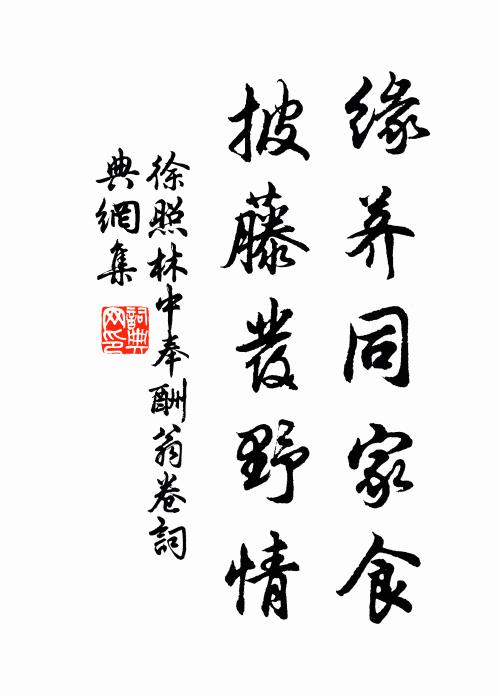 缘养同家食
披藤發野情
徐照林中奉酬翁卷詞
典網集
詞典网印